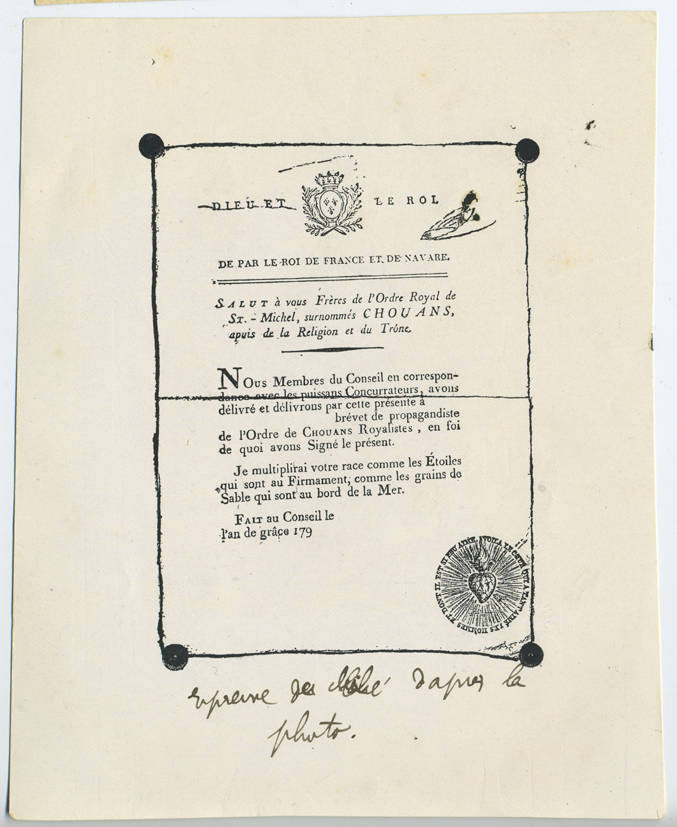 DIEU ET LE ROI
DE PAR LE ROI DE FRANCE ET DE NAVARE.
SALUT à vous Frères de l'Ordre Royal de
ST. - Michel, surnommés CHOUANS,
apuis de la Religion et du Trône.
NOUS Membres du Conseil en correspon-
dance avec les puissans Concurrateurs, avons
délivré et délivrons par cette présente à
brévet de propagandiste
de l'Ordre de CHOUANS Royalistes, en foi
de quoi avons Signé le présent.
Je multiplirai votre race comme les Étoiles
qui sont au Firmament, comme les grains de
Sable qui sont au bord de la Mer.
FAIT au Conseil le
l'an de grâce 179
VOILA LE CŒUR QUI A TANT AIMÉ LES HOMMES ET DONT IL EST SI PEU AIMÉ
Epreuve du cliché d'après la
photo.